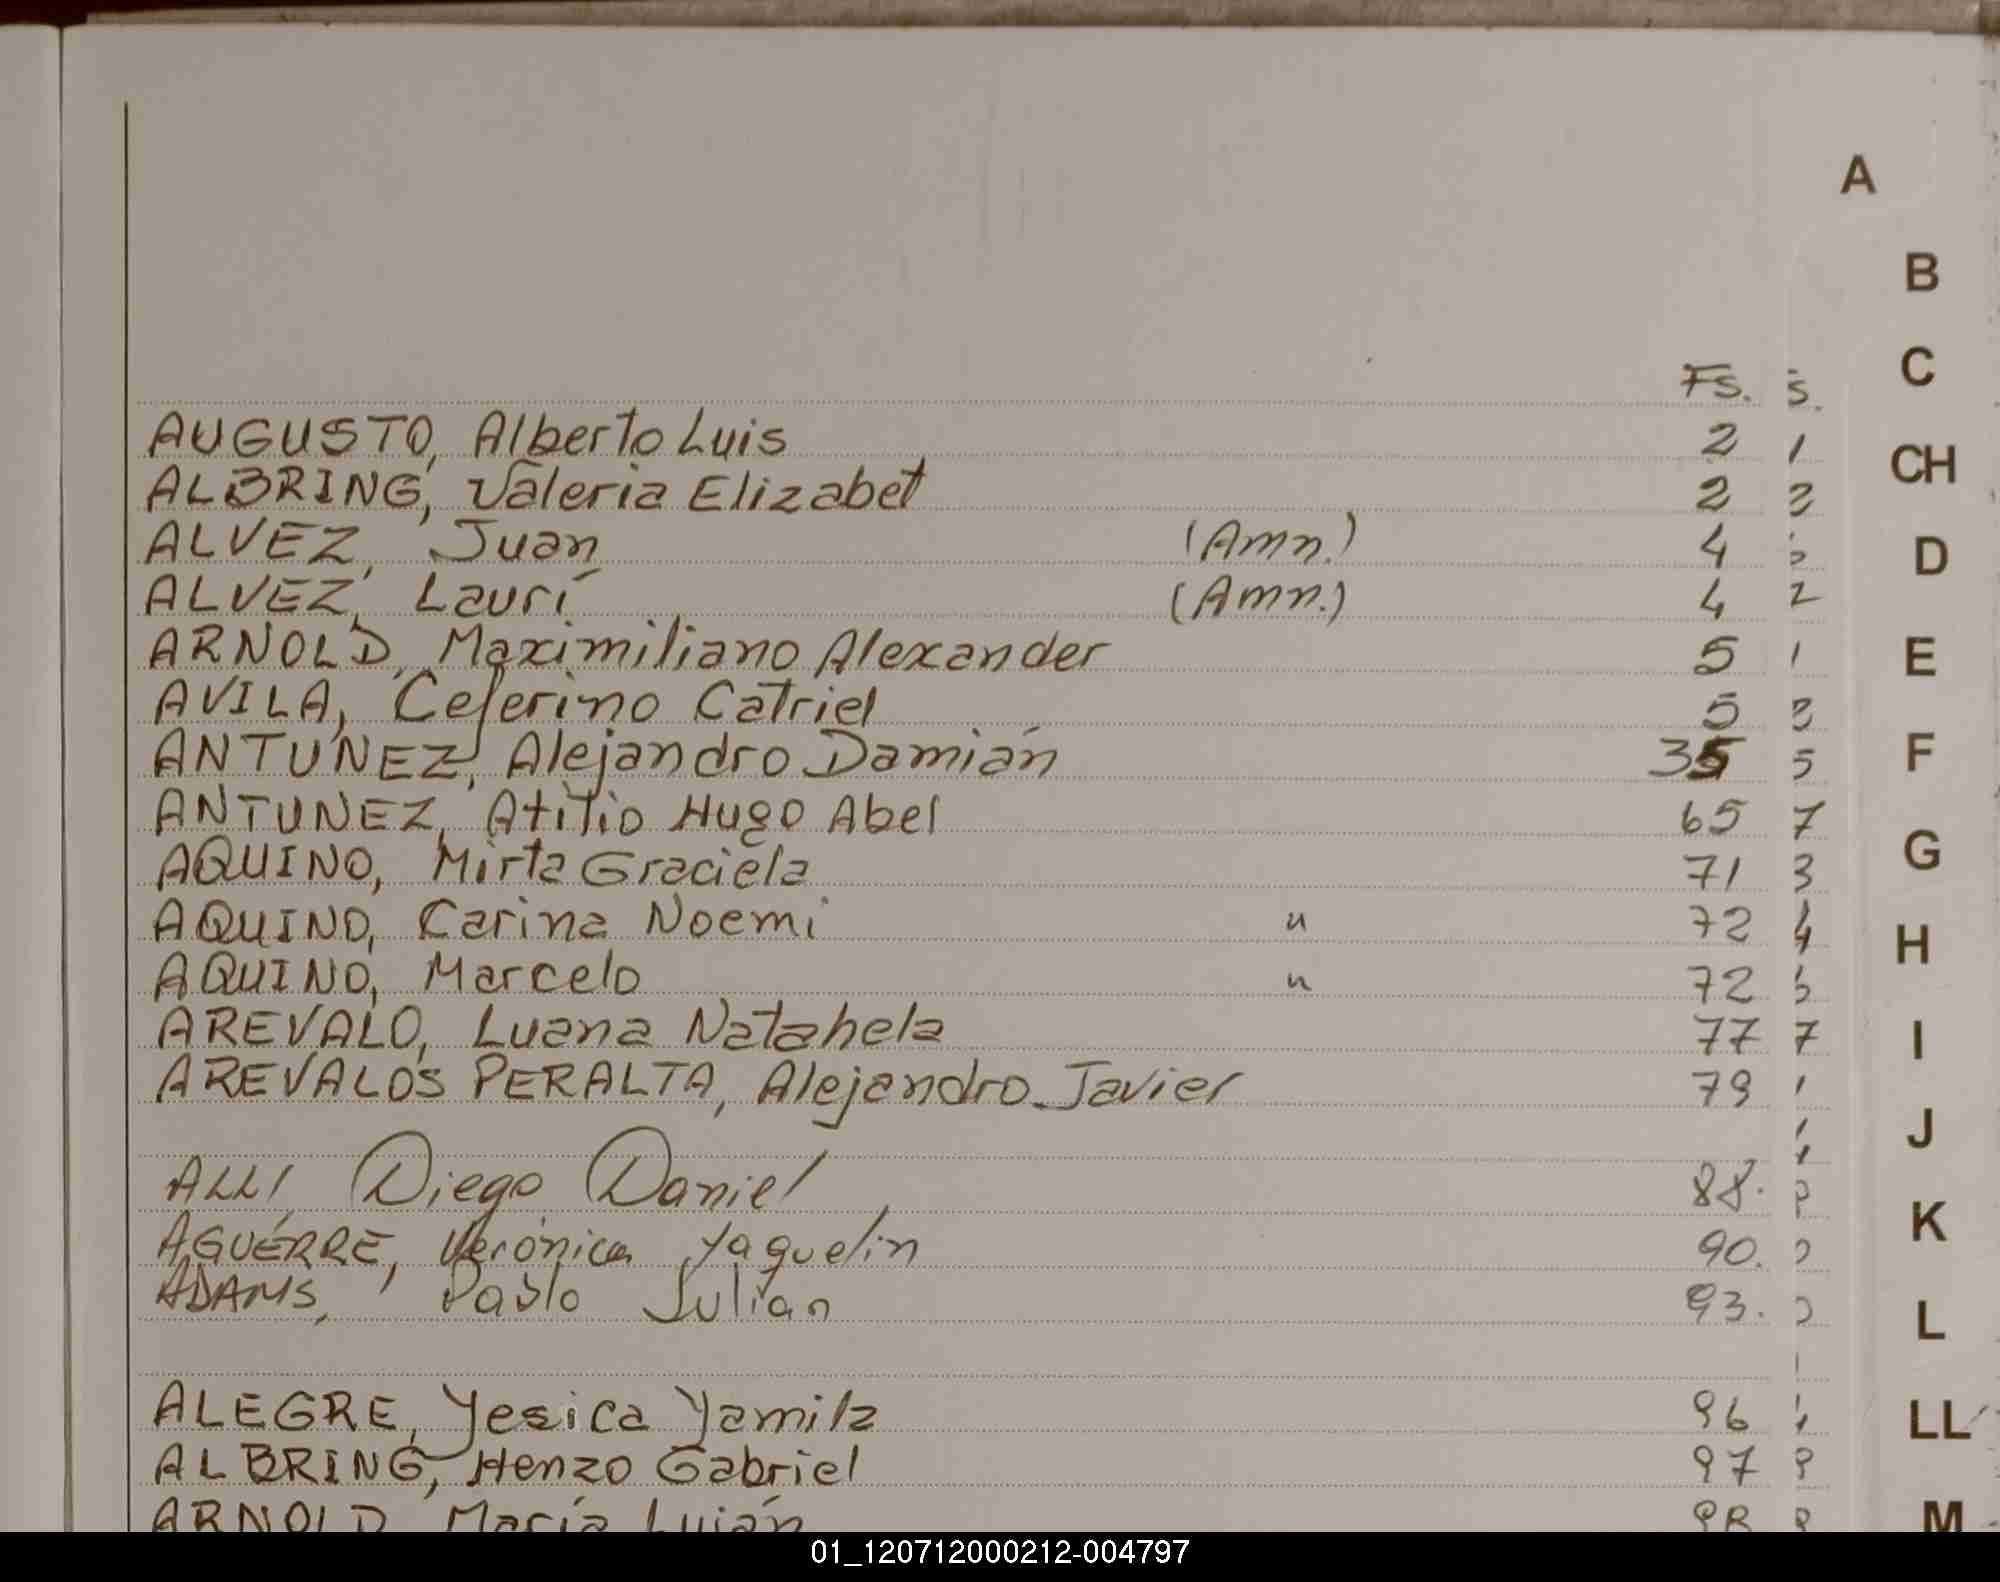 A
B
C
Fs. s.
AUGUSTO, Alberto Luis 2 1
CH
ALBRING, Valeria Elizabet 2
ALVEZ, Juan (Amn.) 4
D
ALVEZ, Laurí (Amn.) 4 2
ARNOLD, Maximiliano Alexander 5 1
E
AVILA, Ceferino Catriel 5
ANTUNEZ, Alejandro Damián 35 5
F
ANTUNEZ, Atilio Hugo Abel 65 7
AQUINO, Mirta Graciela 71 3
G
AQUINO, Carina Noemi " 72 4
H
AQUINO, Marcelo " 72
AREVALO, Luana Natahela 77 7
I
AREVALOS PERALTA, Alejandro Javier 79 1
J
ALLI, Diego Daniel 88.
K
AGUERRE, Verónica Yaquelin 90.
ADAMS, Pablo Julian 93.
L
ALEGRE, Yesica Yamila 96
LL
ALBRING, Henzo Gabriel 97
ARNOLD, María Luján 98
M
01_120712000212-004797